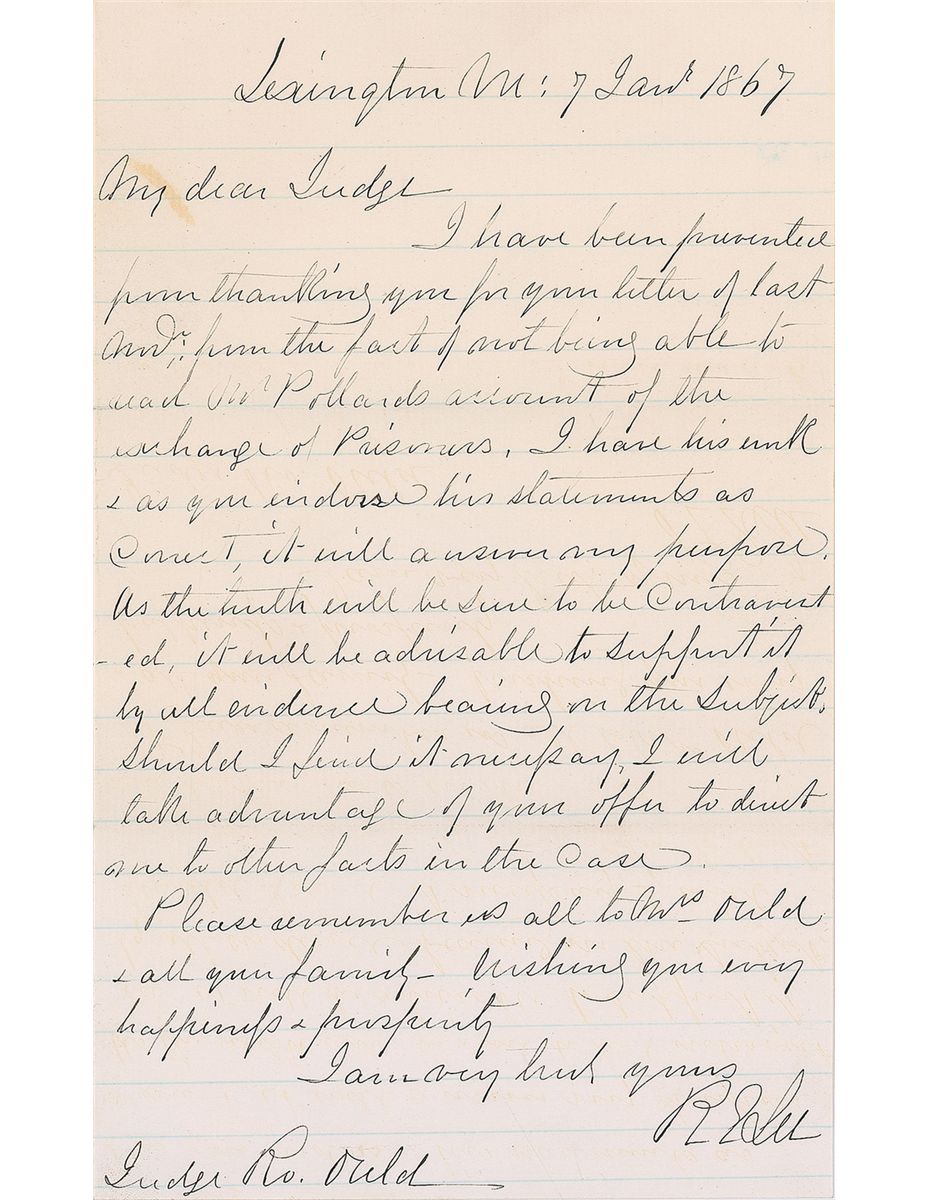 Lexington Va: 7 Janr 1867
My dear Judge
I have been prevented
from thanking you for your letter of last
Novr: from the fact of not being able to
read Mr Pollards account of the
exchange of Prisoners. I have his work
& as you endorse his statements as
Correct, it will answer my purpose.
As the truth will be sure to be Controvert
-ed, it will be advisable to support it
by all evidence bearing on the subject.
Should I find it necessary, I will
take advantage of your offer to direct
me to other facts in the Case.
Please remember us all to Mrs Ould
& all your family - Wishing you every
happiness & prosperity
I am very truly yours
R E Lee
Judge Ro. Ould